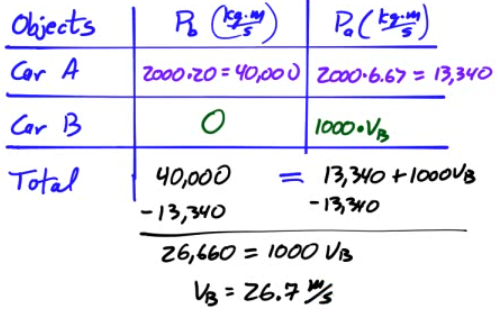 Objects P_b (kg·m/s) P_a (kg·m/s)
Car A 2000·20 = 40,000 2000·6.67 = 13,340
Car B 0 1000·V_B
Total 40,000 = 13,340 + 1000V_B
-13,340 -13,340
26,660 = 1000 V_B
V_B = 26.7 m/s